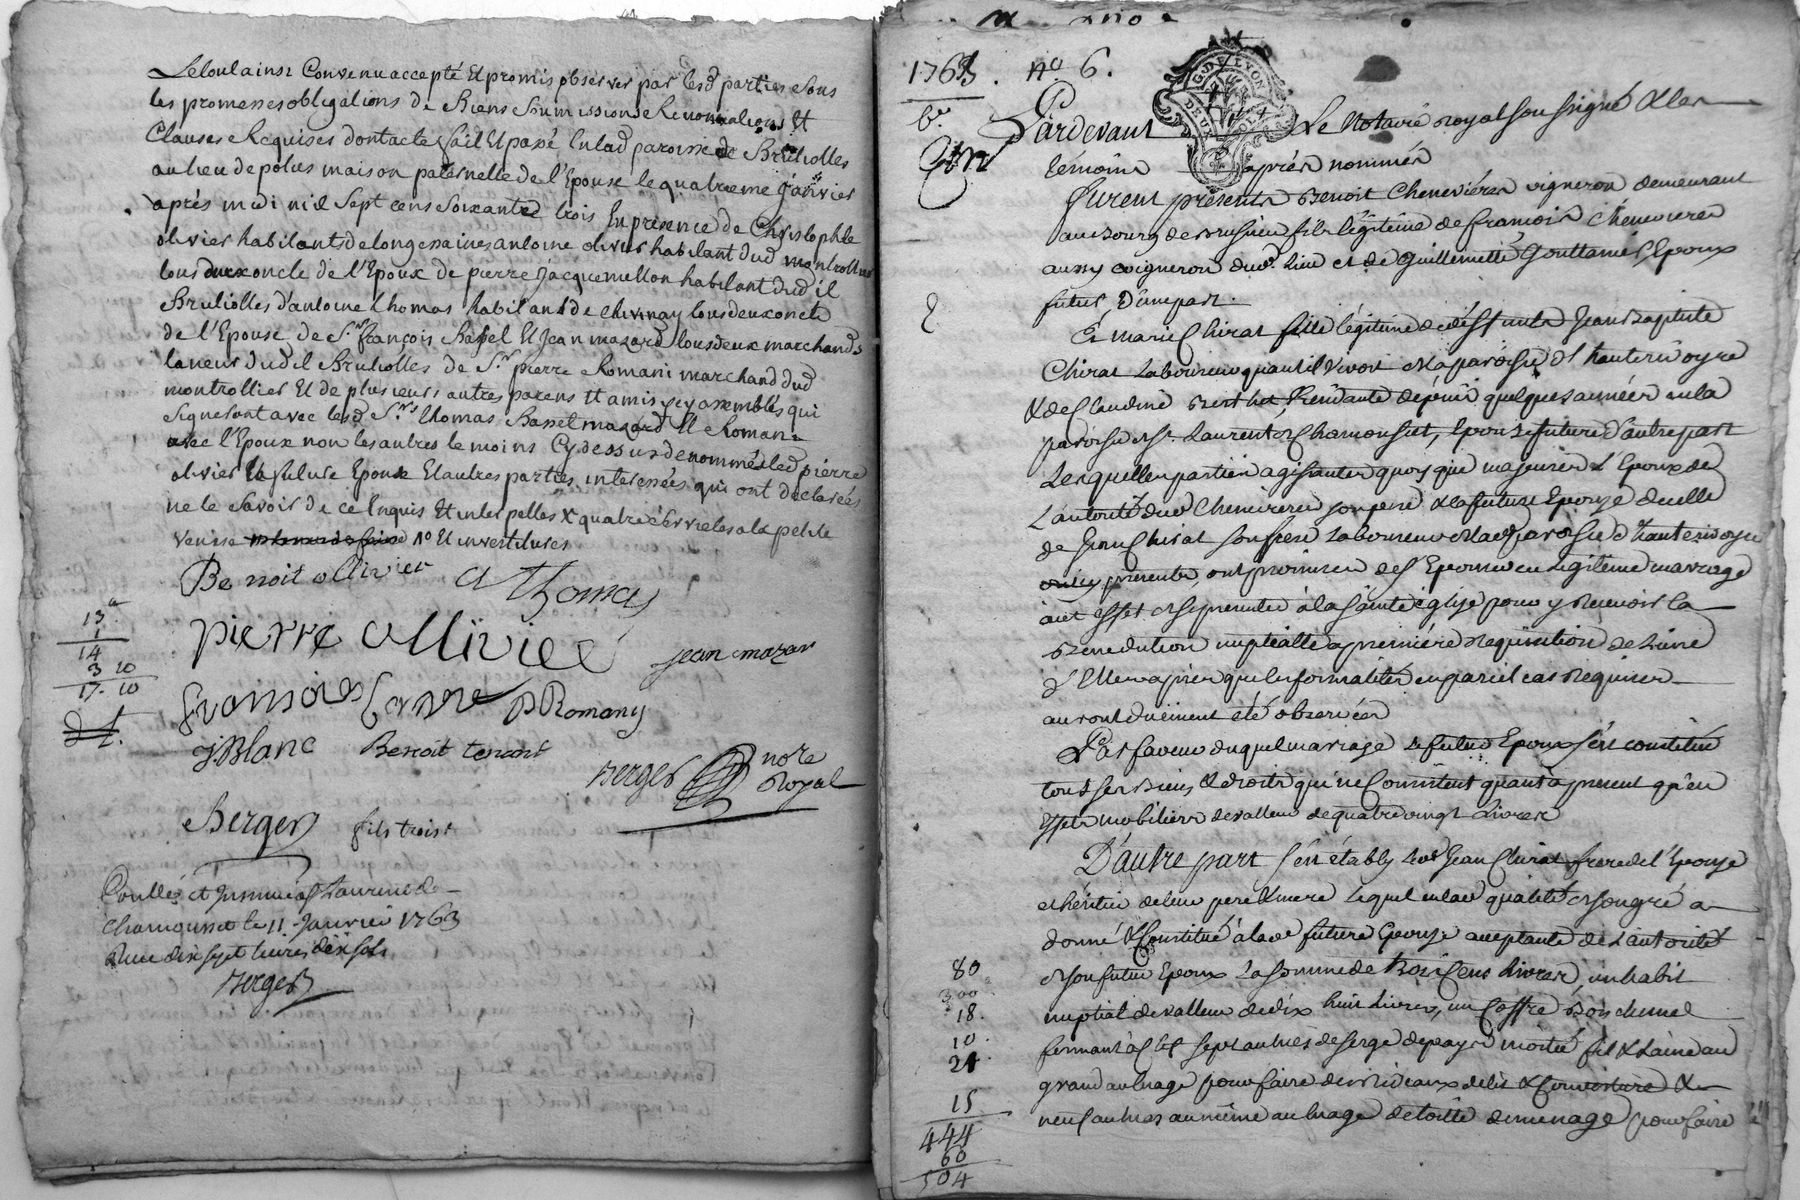 Letout ainsi Convenu accepté et promis observer par lesd parties Sous
les promesses obligations de Biens Soumissions Renonciations Et
Clauses Requises dont acte fait Et passé En lad paroisse de Brulliolles
au lieu de polus maison paternelle de l'Epouse le quatrieme janvier
après midi mil Sept cens Soixante trois En presence de Christophle
olivier habitant de longesaines antoine olivier habitant dud montrottier
tous deux oncle de l'Epoux de pierre jacquemetton habitant dud il
Brulliolles d'antoine thomas habitant de chevinay tous deux oncle
de l'Epouse de Sr. françois Bassel Et Jean mazard tous deux marchands
taneur dud il Brulliolles de Sr. pierre Romani marchand dud
montrottier Et de plusieurs autres parens Et amis y assemblés qui
Signeront avec lesd Srs thomas Bassel mazard Et Roman=
avec l'Epoux non les autres temoins Cy dessus denommés led pierre
olivier la future Epouse Et autres parties interessées qui ont declarées
ne le Savoir de ce Enquis Et interpellés X quatre
venise no Et investitures
Benoit ollivier A Thomas
13
1
14
3 10
17. 10
pierre ollivier jean mazar
françois P Romany
J. Blanc Benoit
Berger nore Royal
Berger fils
Conllé et jnsinué a St Laurent de
chamousset le 11. Janvier 1763
Reçu dix sept livres dix sols
Berger
1763. no. 6.
G. DE LYON
DEUX SOLS
Pardevant Le Notaire royal soussigné & les
témoins après nommés
furent présents Benoit Chenevières vigneron demeurant
au bourg de Brussieu fils légitime de françois Chenevieres
aussy vigneron dud. lieu et de Guillemette Gouttames Epoux
futur, D'une part.
Et marie Chirat fille légitime de défunts Jean Baptiste
Chirat Laboureur quand il vivoit de la paroisse d'hauterivoyre
& de Claudine Berthet, Résidante depuis quelques années en la
paroisse de St. Laurent de Chamousset, Epouse future d'autre part
Lesquelles parties agissantes quoy que majeures L'Epoux de
L'autorité dud Chenevieres son pere & la future Epouse de celle
de Jean Chirat son frere Laboureur de lad paroisse d'hauterivoyre
icy présents, ont promis de S'Epouser en Légitime mariage
à cet effet de se présenter à la sainte église pour y recevoir la
Bénédiction nuptialle à première Réquisition de L'une
d'Elles après que les formalités en pareil cas Requises
auront duement été observées
En faveur duquel mariage le futur Epoux s'est constitué
tous ses Biens & droits qui ne Consistent quant à present qu'en
Effets mobiliers de valleur de quatre vingt Livres
D'autre part s'est étably led Jean Chirat frere de l'Epouse
et héritier de leur pere & mere Lequel en lad qualité de son gré a
donné & Constitué à lad future Epouse acceptante de L'autorité
de son futur Epoux La somme de trois Cens Livres, un habit
nuptial de valleur de dix huit Livres, un Coffre Bois chenel
fermant à clef sept aulnes de serge de pays moitié fil & Laine au
grand aulnage pour faire des Rideaux de lit & Couverture &
neuf aulnes au même aulnage de toille de menage pour faire
80
300
18.
10.
21
15
444
60
504